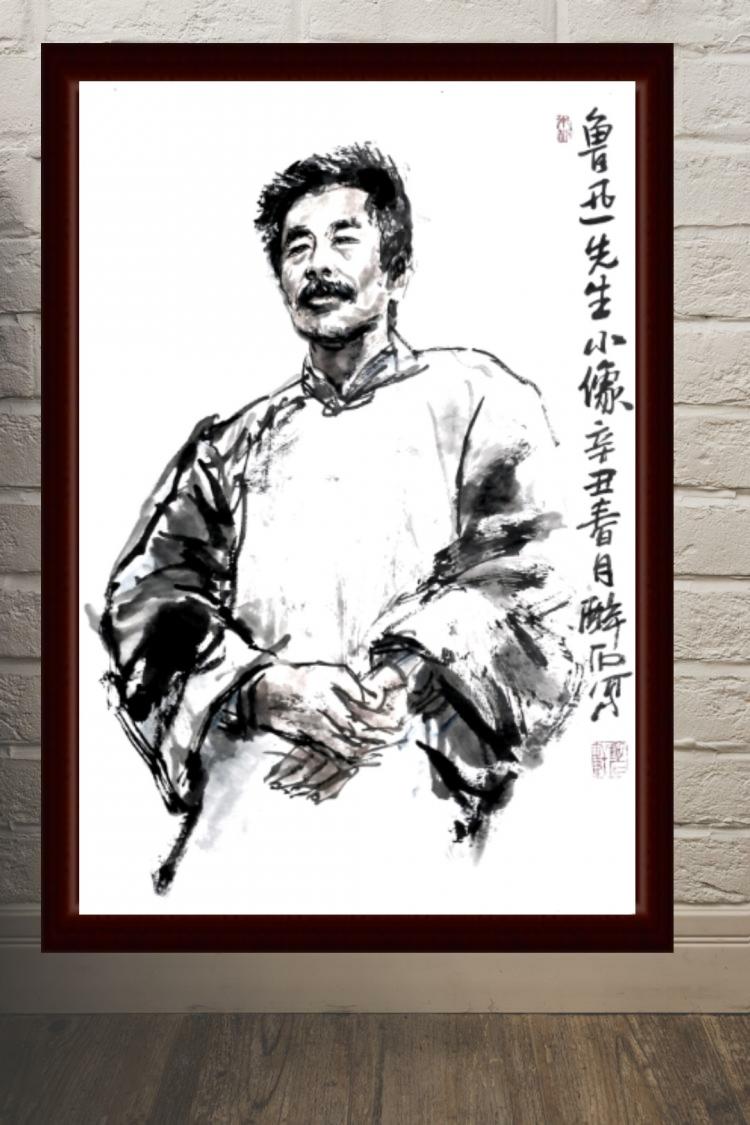 鲁迅先生小像辛丑春月醉石写